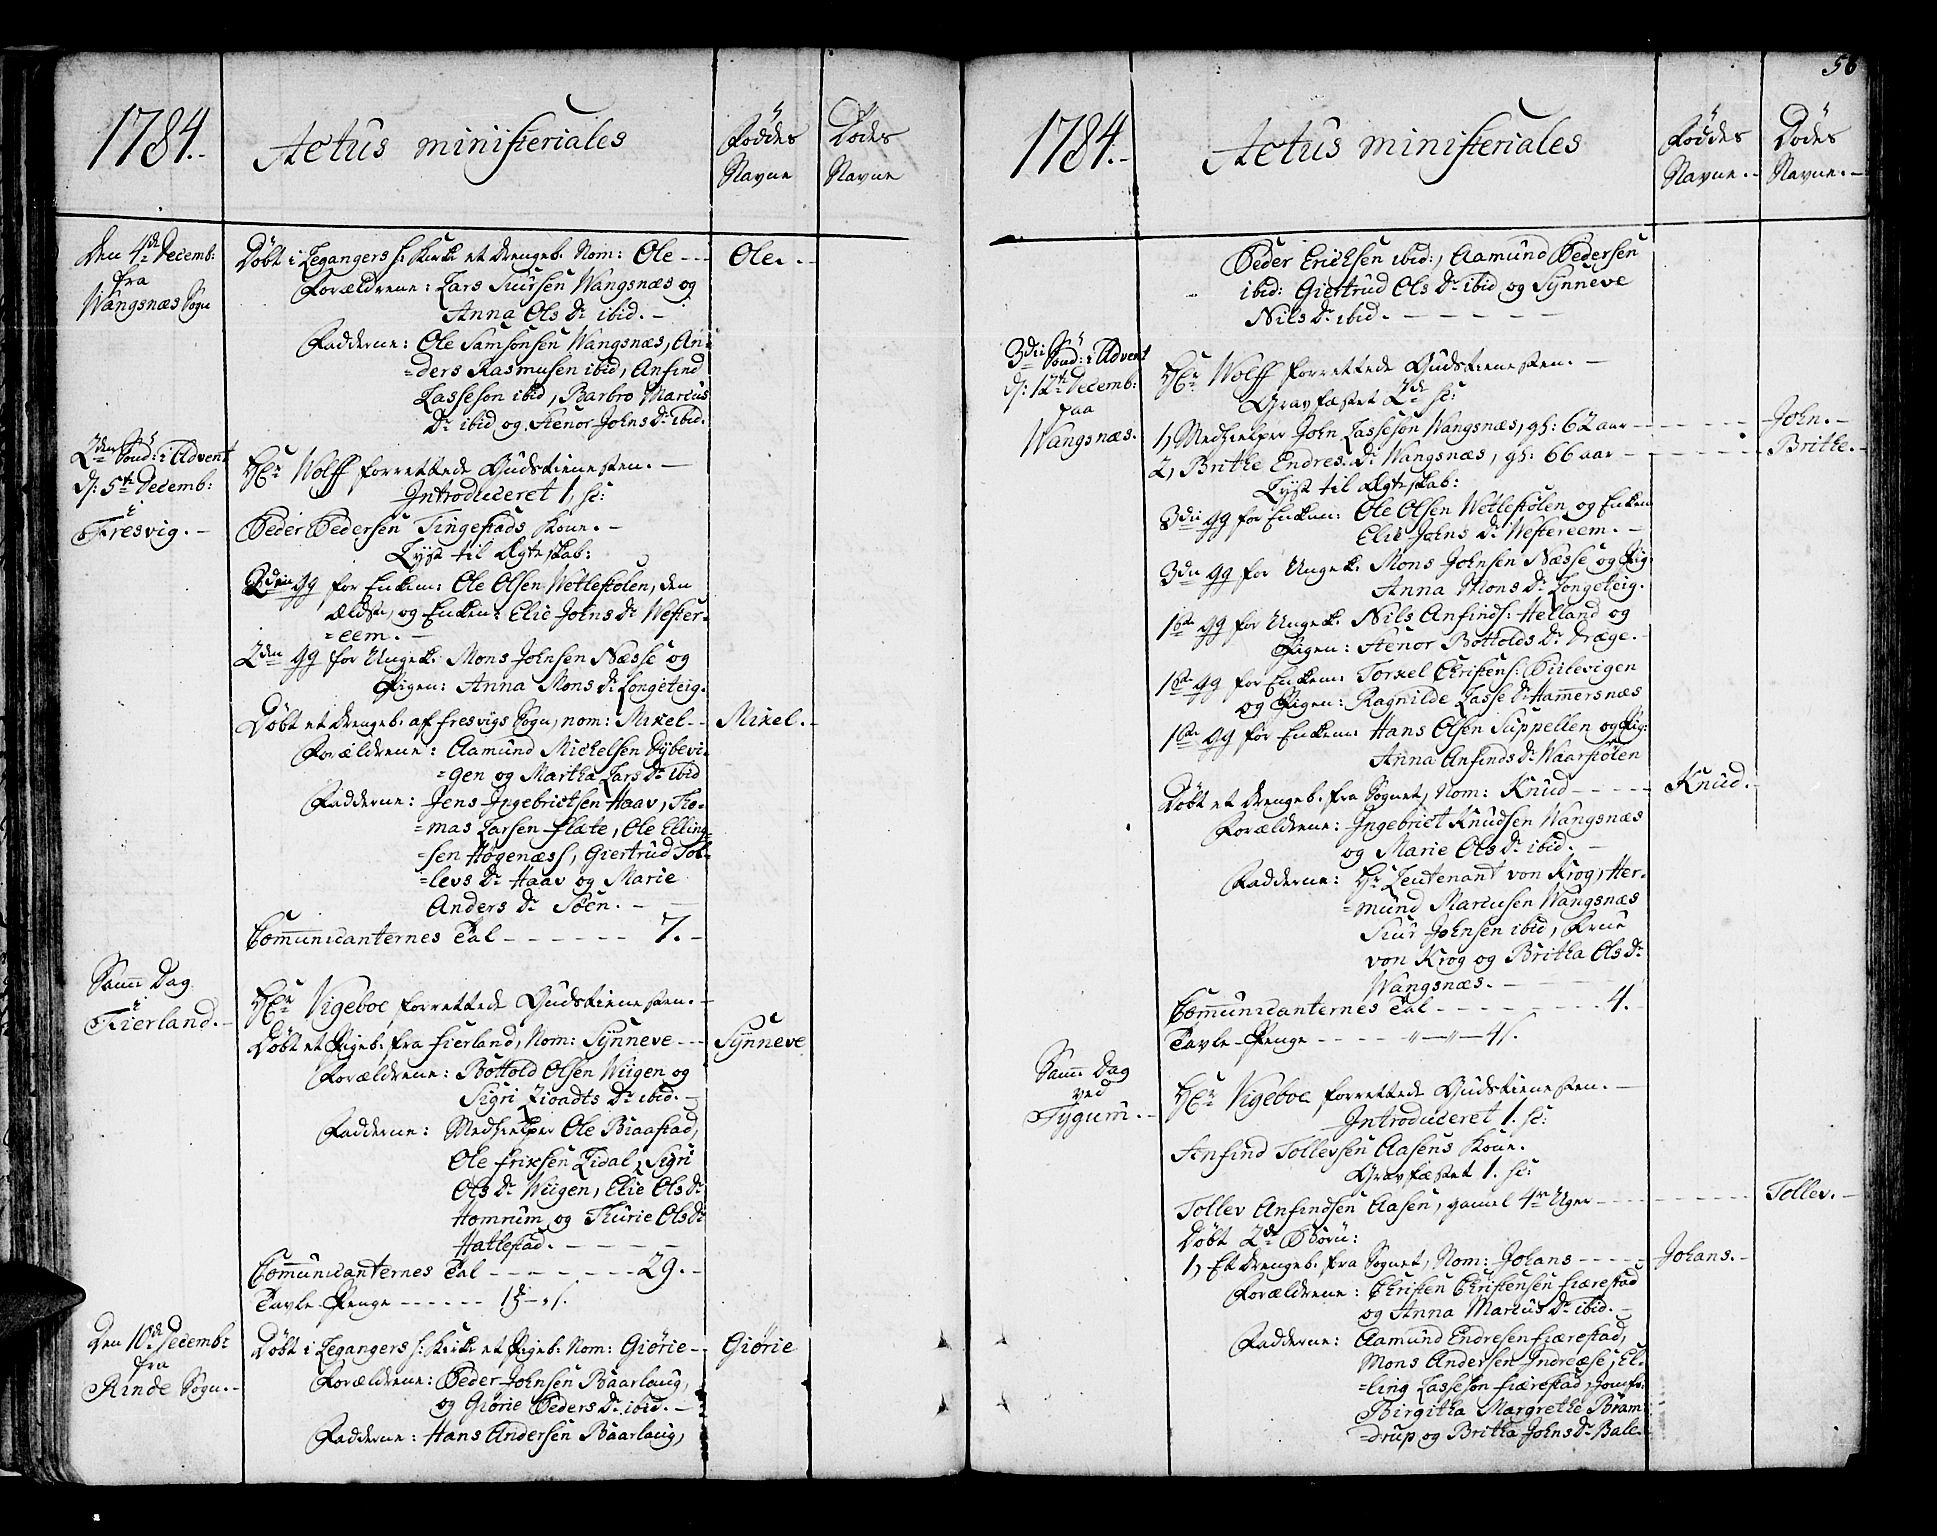 1784.-
Actus ministeriales
Föddes
Navne
Dödes
Navne
Den 4de Decemb:
fra
Wangsnæs Sogn
Döbt i Legangers h: Kirke et drengeb. Nom: Ole - - -
Ole. -
Forældrene: Lars Siursen Wangsnæs og
Anna Ols Dr ibid. -
Fadderne: Ole Samsonsen Wangsnæs, An-
=ders Rasmusen ibid, Anfind
Lasseson ibid, Barbro Marcus
Dr ibid og Stenor Johns Dr ibid.
2den Sönd: i Advent
d: 5te Decemb:
i
Fresvig. -
HEr Wolff forrettede Gudstienesten. -
Introduceret 1, sc:
Peder Pedersen Tingestads Kone. -
Lyst til Ægteskab:
2den gg for Enkem: Ole Olsen Wetlestolen, den
ældste, og Enken: Elie Johns Dr Wester-
=eem. -
2den gg for Ungek. Mons Johnsen Næsse og
Pigen: Anna Mons Dr Longeteig.
Döbt et drengeb. af fresvigs Sogn, nom: Mikel - -
Mikel. -
Forældrene: Aamund Michelsen Dybevi-
=gen og Martha Lars Dr ibid
Fadderne: Jens Ingebrictsen Haav, Tho-
=mas Larsen flæte, Ole Elling-
=sen Högenæss, Giertrud Tol-
=levs Dr Haav og Marie
Anders Dr Söen. - -
Communicanternes Tal - - - - - - 7. -
Samm Dag
i
Fierland. -
HEr Vigeboe forrettede Gudstienesten. -
Döbt et Pigeb. fra fierland, Nom: Synneve - - -
Synneve
Forældrene: Bottold Olsen Wiigen og
Sigri Lioadts Dr ibid. -
Fadderne: Medhielper Ole Biaastad,
Ole Erixsen Lidal, Sigri
Ols Dr Wiigen, Elie Ols Dr
Homrum og Thurie Ols Dr
Hatlestad. - - - -
Communicanternes Tal - - - - - - - 29. -
Tavle-Penge - - - - - -
Den 10de Decemb:
fra
Rinde Sogn. -
Döbt i Legangers h: Kirke et Pigeb: Nom: Giörie - -
Giörie
Forældrene: Peder Johnsen Baarlaug,
og Giörie Peders Dr ibid. -
Fadderne: Hans Andersen Baarlaug,
56
1784. -
Actus ministeriales
Föddes
Navne. -
Dödes
Navne. -
Peder Ericksen ibid:, Aamund Pedersen
ibid: Giertrud Ols Dr ibid og Synneve
Nils Dr ibid. - - - - - -
3die Sönd: i Advent
d: 12te Decemb:
paa
Wangsnæs.
HEr Wolff forrettede Gudstienesten. -
Gravfæstet 2de sc:
1, Medhielper John Lasseson Wangsnæs, gl: 62 aar - - - -
John. -
2, Brithe Endres Dr Wangsnæs, gl: 66 aar - - - - -
Brithe. -
Lyst til Ægteskab:
3die gg for Enkem: Ole Olsen Wetlestölen og Enken
Elie Johns Dr Westereem. -
3die gg for Ungek. Mons Johnsen Næsse og Pig:
Anna Mons Dr Longeteig.
1ste gg for Ungek. Nils Anfinds: Helland og
Pigen: Stenor Bottolds Dr Dræge. -
1ste gg for Enkem: Torkel Christens: Diilevigen
og Pigen: Ragnilde Lasse Dr Hamersnæs
1ste gg for Enkem: Hans Olsen Suppellen og Pig:
Anna Anfinds Dr Waarstölen
Döbt et drengeb. fra Sognet, Nom: Knud - - - -
Knud. -
Forældrene: Ingebrict Knudsen Wangsnæs
og Marie Ols Dr ibid. -
Fadderne: Hr Leutenant von Krog, Her-
=mund Marcusen Wangsnæs
Siur Johnsen ibid, Frue
von Krog og Britha Ols Dr
Wangsnæs. - - - -
Communicanternes Tal - - - - - - - - 4. -
Tavle-Penge - - - - - "-"- 4 s.
Samm Dag
ved
Tygum. -
HEr Vigeboe forrettede Gudstienesten. -
Introduceret 1. sc:
Anfind Tollevsen Aasens Kone. -
Gravfæstet 1. sc:
Tollev Anfindsen Aasen, gamel 4re Uger - - - - -
Tollev. -
Döbt 2de Börn:
1, Et drengeb. fra Sognet, Nom: Johans - - - -
Johans. -
Forældrene: Christen Christensen fiærestad
og Anna Marcus Dr ibid. -
Fadderne: Aamund Endresen fiærestad,
Mons Andersen Indreæse, El-
=ling Lasseson fiærestad, Jomfr:
Birgitha Margrethe Bram-
=drup og Britha Johns Dr Bale.